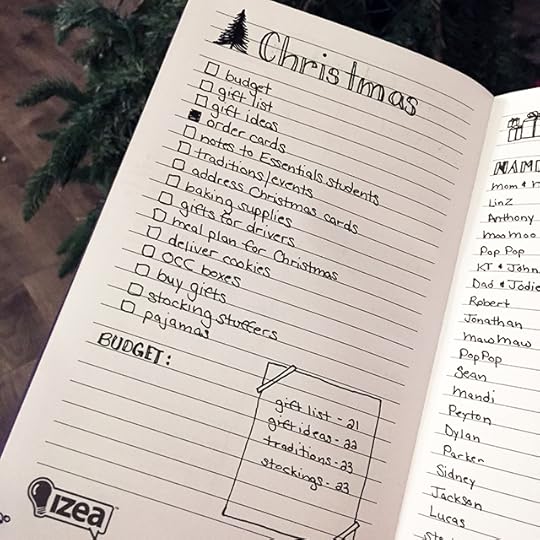 Christmas
budget
gift list
gift ideas
order cards
notes to Essentials students
traditions/events
address Christmas cards
baking supplies
gifts for drivers
meal plan for Christmas
deliver cookies
OCC boxes
buy gifts
stocking stuffers
pajamas
BUDGET:
gift list - 21
gift ideas - 22
traditions - 23
stockings - 23
izea
TM
20
Mom &
Linz
Anthony
MooMoo
Pop Pop
KT & John
Dad & Jodie
Robert
Jonathan
MawMaw
PopPop
Sean
Mandi
Peyton
Dylan
Parker
Sidney
Jackson
Lucas